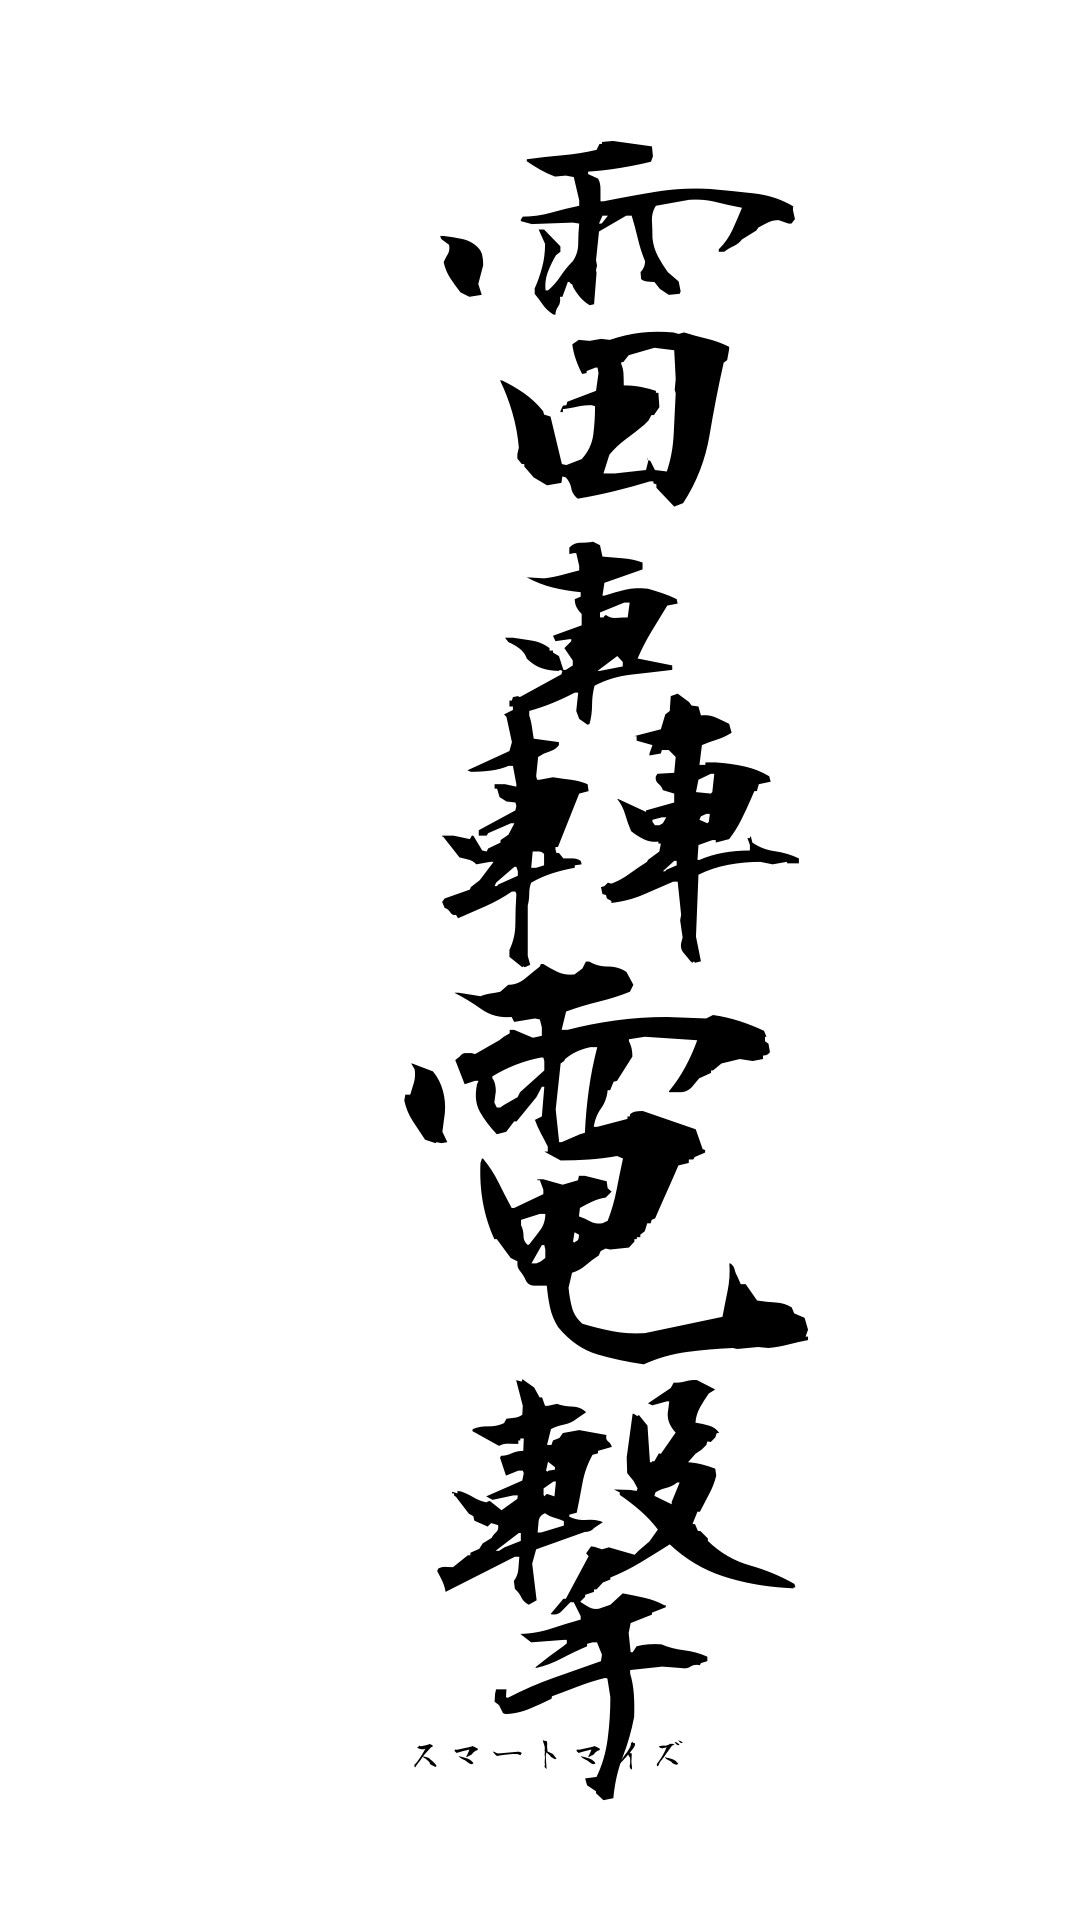 雷轟電撃
スマートマイズ